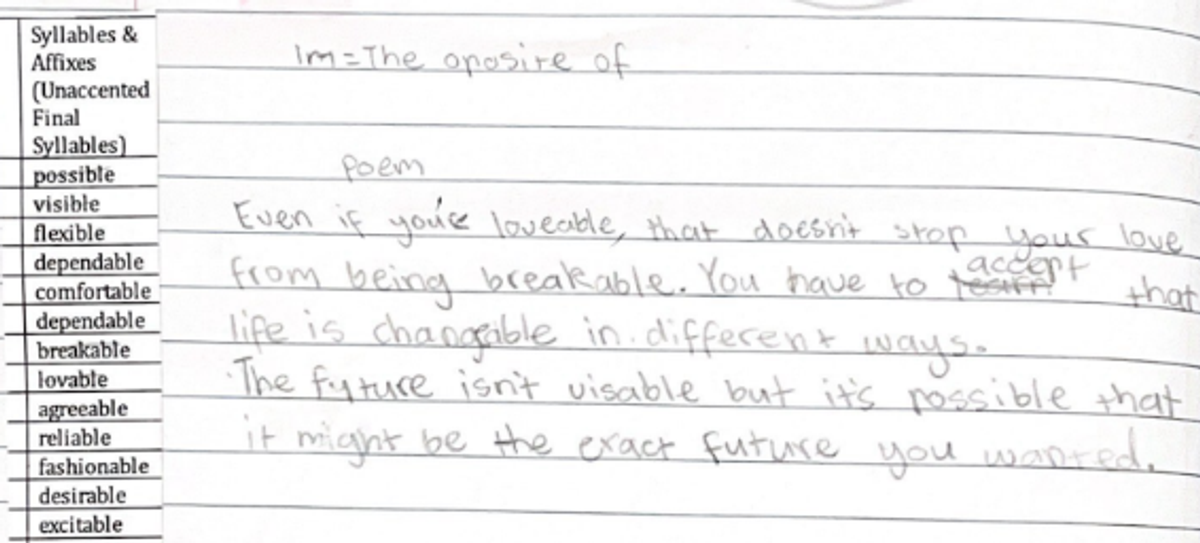 Syllables &
Affixes
(Unaccented
Final
Syllables)
possible
visible
flexible
dependable
comfortable
dependable
breakable
lovable
agreeable
reliable
fashionable
desirable
excitable
Im = The oposite of
Poem
Even if you're loveable, that doesn't stop your love
from being breakable. You have to accept that
life is changeable in different ways.
The future isn't visable but it's possible that
it might be the exact future you wanted.